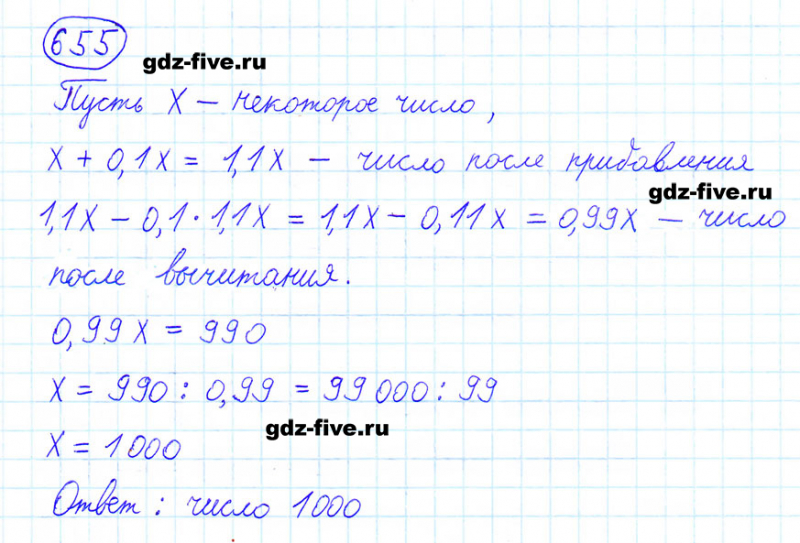 655
gdz-five.ru
Пусть х – некоторое число,
х + 0,1х = 1,1х – число после прибавления
gdz-five.ru
1,1х – 0,1 · 1,1х = 1,1х – 0,11х = 0,99х – число
после вычитания.
0,99х = 990
х = 990 : 0,99 = 99 000 : 99
gdz-five.ru
х = 1000
Ответ : число 1000